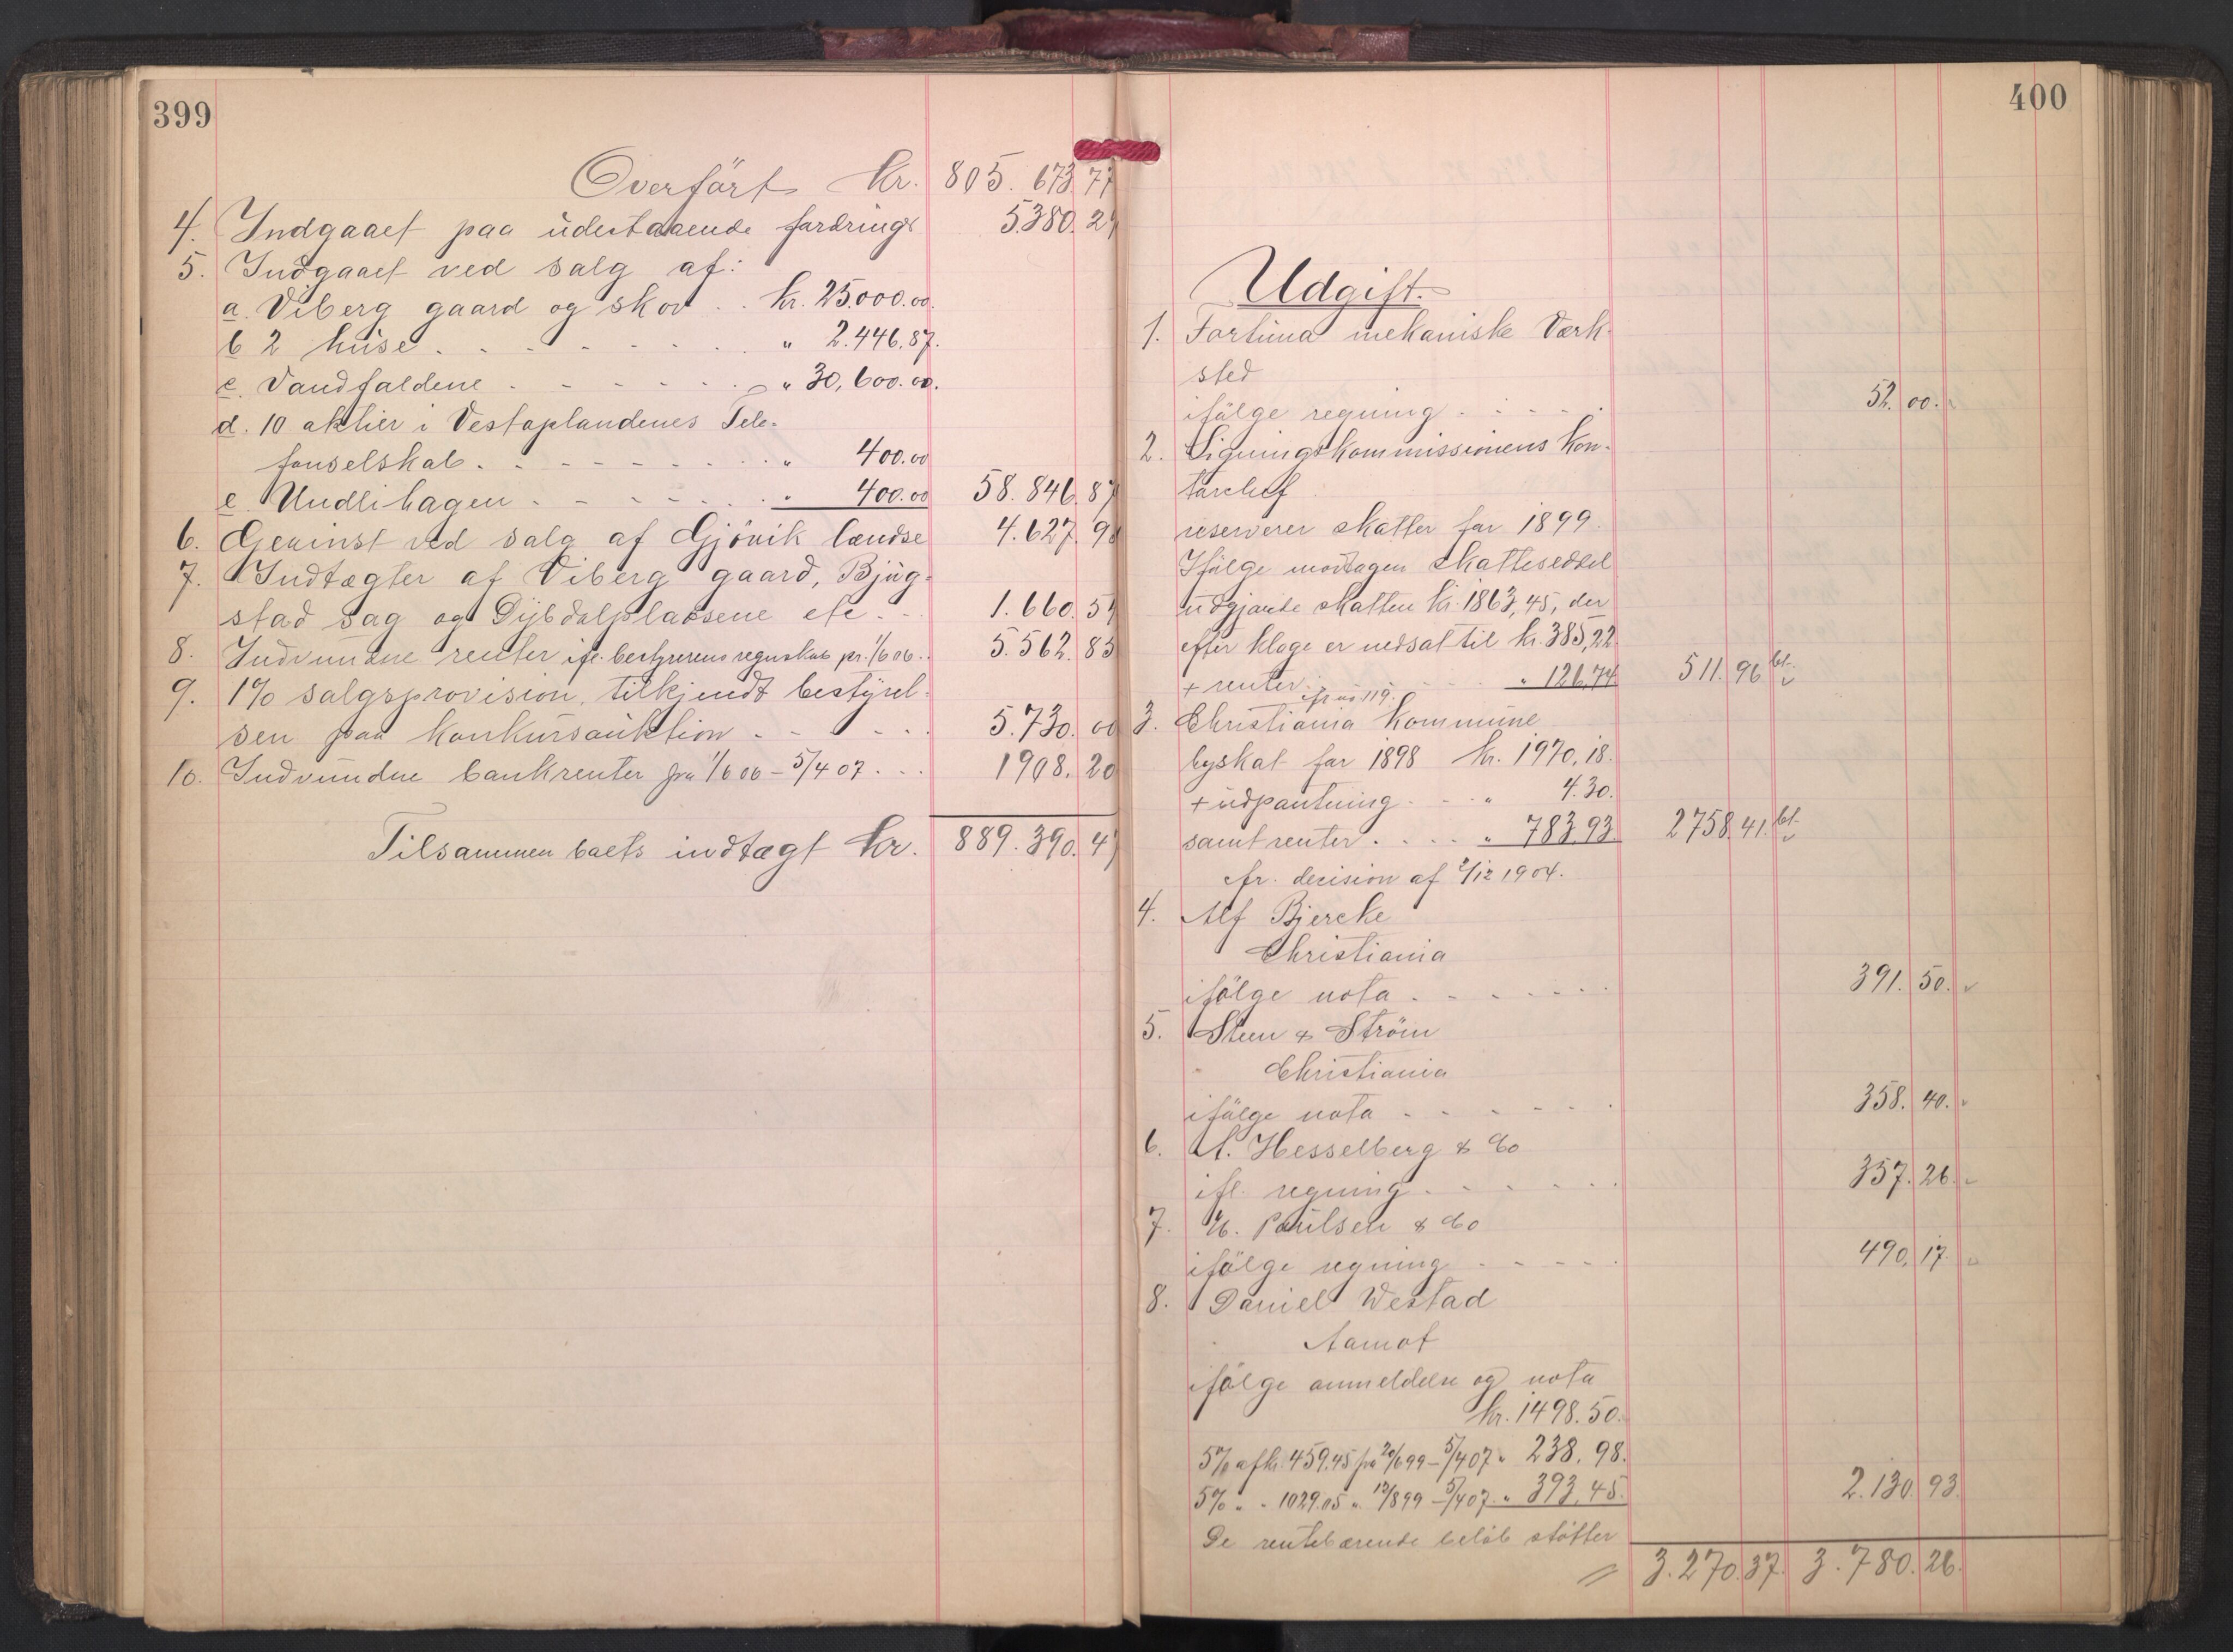 399
Overført Kr. 805.673.77
4. Indgaaet paa udestaaende fordringr 5.380.29
5. Indgaaet ved salg af:
a. Viberg gaard og skov . . kr. 25.000.00.
b 2 huse . . . . . . . . " 2.446.87.
c. Vandfaldene . . . . . . " 30,600.00.
d. 10 aktier i Vestoplandenes Tele-
fonselskab . . . . . . . . " 400.00
e. Undlihagen . . . . . . . " 400.00 58.846.87
6. Gevinst ved salg af Gjøvik lændse 4.627.98
7. Indtægter af Viberg gaard, Bjug-
stad sag og Dybdalpladsene etc . . 1.660.59
8. Indvundne renter ifl. bestyrerens regnskab pr. 1/6 06 . . 5.562.83
9. 1% salgsprovision, tilkjendt bestyrel-
sen paa konkursauktion . . . . . 5.730.00
10. Indvundne bankrenter fra 1/6 06 – 5/4 07 . . . 1908.20
Tilsammen boets indtægt Kr. 889.390.47
400
Udgift.
1. Fortuna mekaniske Værk-
sted
ifølge regning . . . . . 52.00.
2. Ligningskommissionens Kon-
torchef
reserverer skatter for 1899.
Ifølge modtagen skatteseddel
udgjorde skatten kr. 1863,45, der
efter klage er nedsat til kr. 385,22
+ renter . . . . " 126,74 511.96 bt.
cfr no 119.
3. Christiania Kommune
byskat for 1898 kr. 1970,18.
+ udpantning . . . " 4.30.
samt renter . . . . " 783.93 2758.41. bt.
cfr. decision af 2/12 1904.
4. Alf Bjercke
Christiania
ifølge nota . . . . . . . 391.50.
5. Steen & Strøm
Christiania
ifølge nota . . . . . . 358.40.
6. A. Hesselberg & Co
ifl. regning . . . . . . 357.26.
7. N. Paulsen & Co
ifølge regning . . . . . 490,17.
8. Daniel Westad
Aamot
ifølge anmeldelse og nota
Kr. 1498.50.
5% af kr. 459.45 fra 20/6 99 – 5/4 07 " 238.98.
5% " " 1029.05 " 12/8 99 – 5/4 07 " 393.45. 2.130.93.
De rentebærende beløb støtter
3.270.37. 3.780.26.